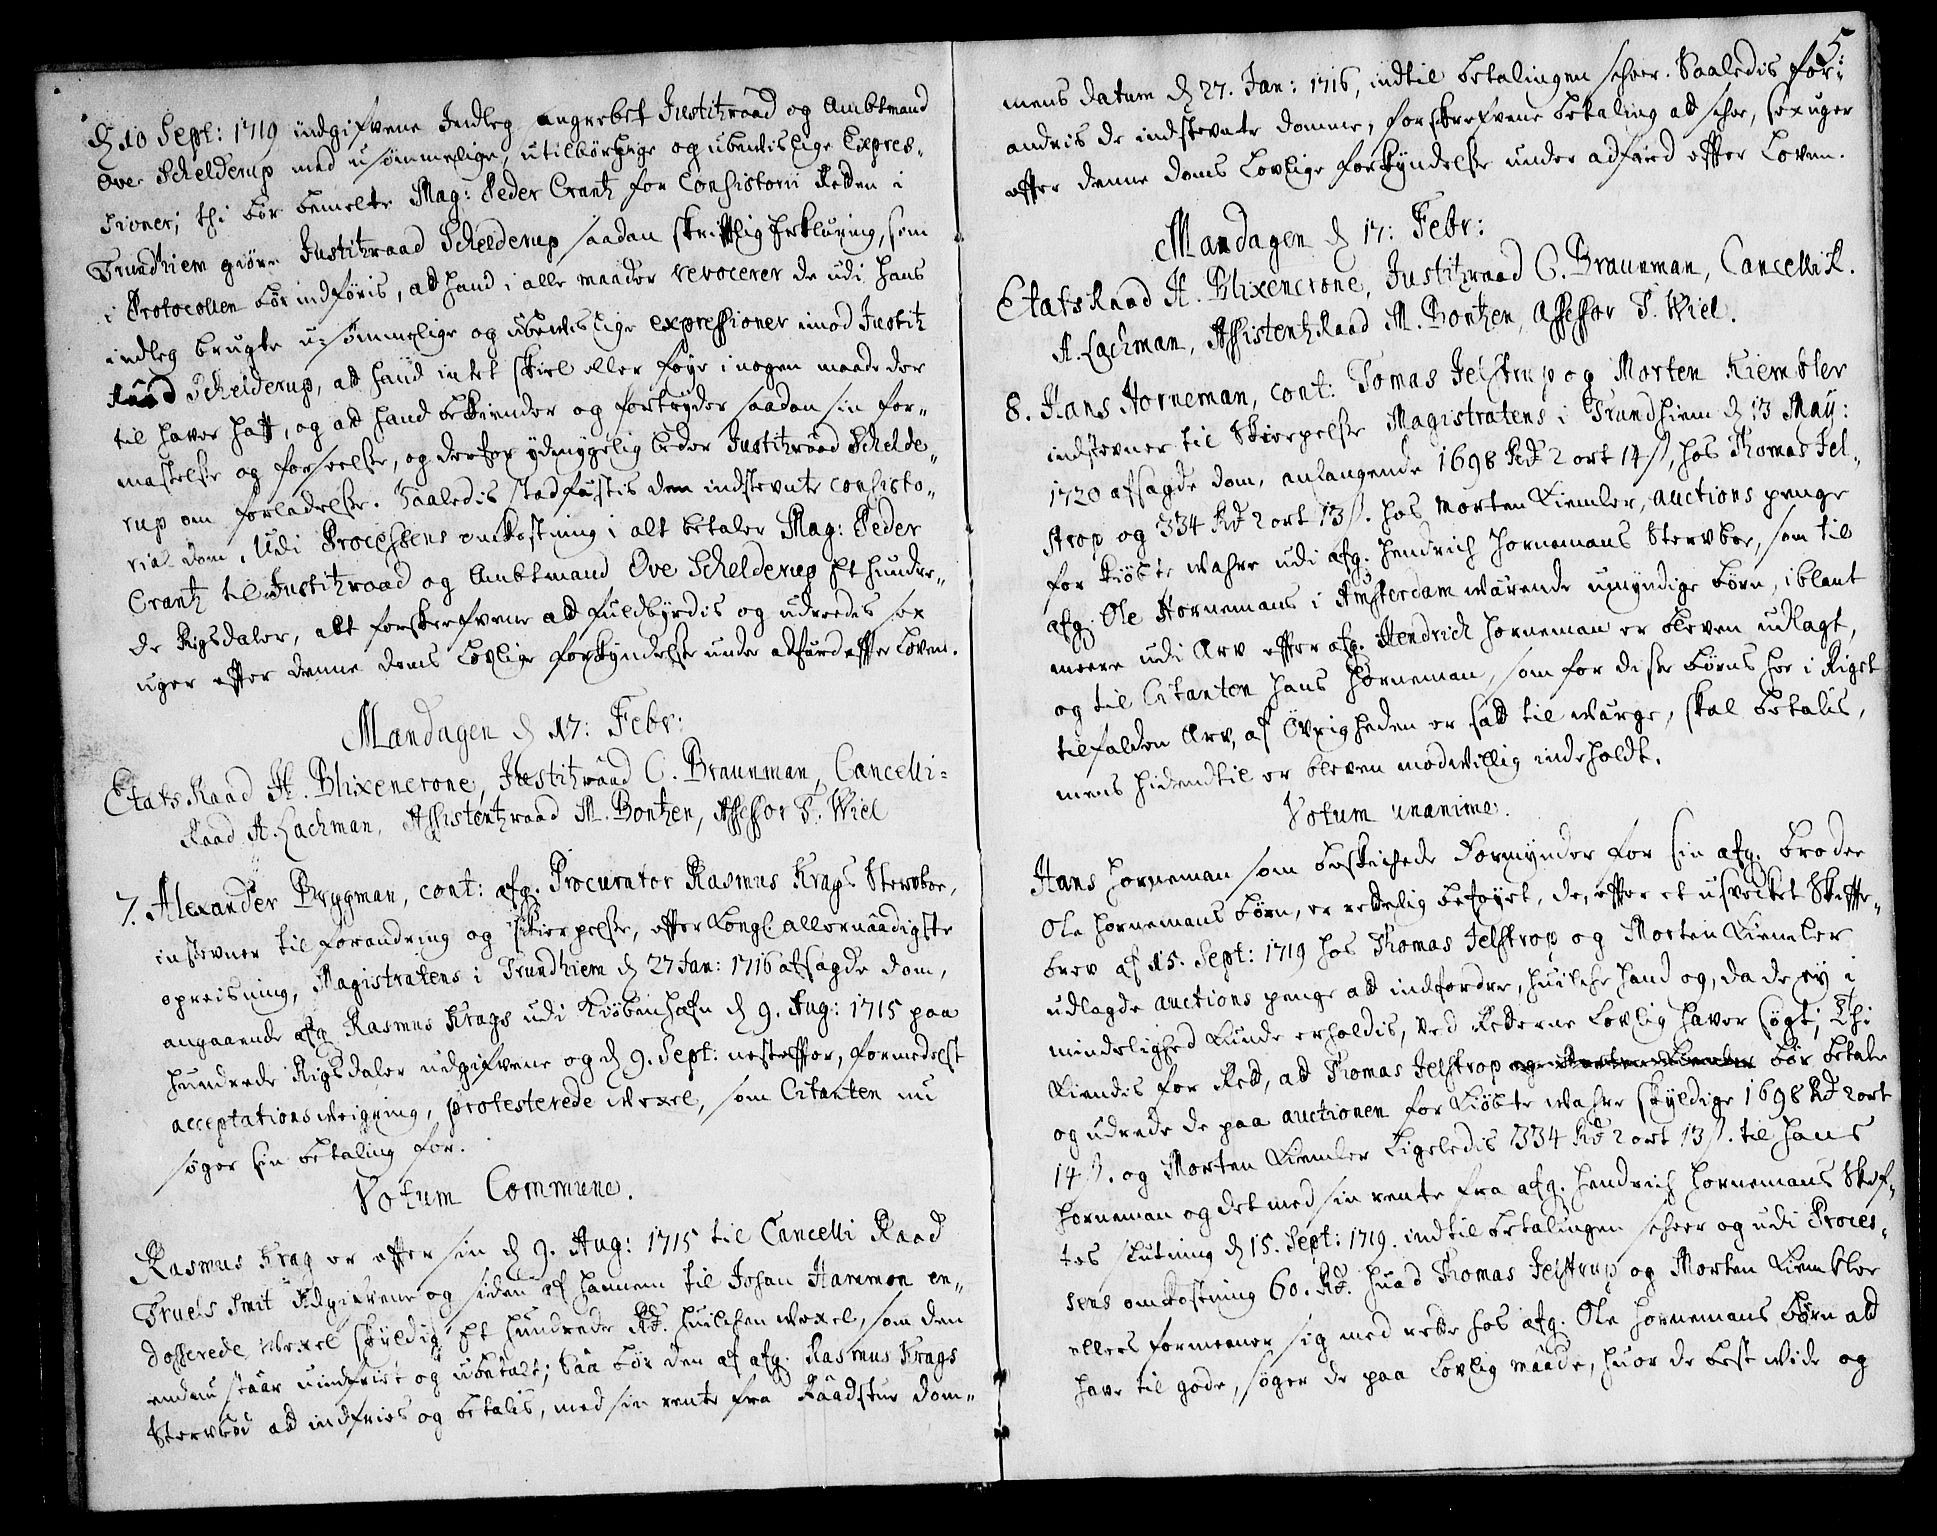 d 10 Sept: 1719 indgifvene Indleg angrebet Justitzraad og Ambtmand
Ove Schelderup med usømmelige, utilbørlige og ubeviislige Expres-
sioner; thi bør bemelte Mag: Peder Crantz for Consistorii Retten i
Trundhiem giøre Justitzraad Schelderup saadan skriftlig Erklæring, som
i Protocollen bør indføris, at hand i alle maader revocerer de udi hans
indleg brugte usømmelige og ubeviislige expressioner imod Justitz
Raad Schelderup, at hand intet skiel eller føye i nogen maade der
til haver haft, og at hand bekiender og fortryder saadan sin for-
mastelse og forseelse, og derfor ydmygelig beder Justitzraad Schelde-
rup om forladelse. Saaledis stadfæstis den indstevnte Consisto-
rial dom. Udi Processens omkostning i alt betaler Mag: Peder
Crantz til Justitzraad og Ambtmand Ove Schelderup Et hundre-
de Rigsdaler, alt forskrefvene at fuldbyrdis og udreedis sex
uger efter denne doms lovlige forkyndelse under adfærd efter Loven.
Mandagen d 17: Febr:
Etats Raad H. Blixencrone, Justitzraad C. Braunman, Cancelli-
Raad A. Lachman, Assistentzraad M. Bontzen, Assessor F. Wiel
7. Alexander Brygman, cont: afg. Procurator Rasmus Krags Stervboe,
instevner til forandring og skierpelse, efter Kongl. allernaadigste
opreisning, Magistratens i Trundhiem d 27 Jan: 1716 afsagde dom,
angaaende afg. Rasmus Krags udi Kiøbenhafn d 9. Aug: 1715 paa
hundrede Rigsdaler udgifvene og d 9. Sept: nestefter, formedelst
acceptations Weigring, protesterede Wexel, som Citanten nu
søger sin betaling for.
Votum Commune.
Rasmus Krag er efter sin d 9. Aug: 1715 til Cancelli Raad
Truels Smit udgifvene og siden af hannem til Johan Hammon en-
dosserede Wexel skyldig Et hundrede Rd. huilchen Wexel, som den
endnu staar uindfriet og ubetalt; Saa bør den af afg. Rasmus Krags
Stervboe at indfries og betalis, med sin rente fra Raadstue dom-
5.
mens datum d 27. Jan: 1716, indtil betalingen scheer. Saaledis for-
andris de indstevnte domme, forskrefvene betaling at schee, sex uger
efter denne doms Lovlige forkyndelse under adfærd efter Loven.
Mandagen d 17: Febr:
Etats Raad H. Blixencrone, Justitzraad C. Braunman, Cancelli R.
A. Lachman, Assistentz Raad M. Bontzen, Assessor F. Wiel.
8. Hans Horneman, cont: Tomas Jelstrup og Morten Kiembler
indstevner til Skierpelse Magistratens i Trundhiem d 13 May:
1720 afsagde dom, anlangende 1698 Rd 2 ort 14 s, hos Thomas Jel-
strop og 334 Rd 2 ort 13 s. hos Morten Kiemler, auctions penge
for kiøbte Wahre udi afg. Hendrich Hornemans Stervboe, som til
afg. Ole Hornemans i Amsterdam wærende umyndige børn, iblant
meere udi Arv efter afg. Hendrich Horneman er bleven udlagt,
og til Citanten Hans Horneman, som for disse børns her i Riget
tilfalden Arv, af Øvrigheden er sadt til Wærge, skal betalis,
mens hidendtil er bleven modvillig indeholdt.
Votum unanime.
Hans Horneman som beskichede Formynder for sin afg. Broder
Ole Hornemans børn, er rettelig beføyet, de, efter et usvecket Skifte-
brev af 15. Sept: 1719 hos Thomas Jelstrop og Morten Kiembler
udlagde auctions penge at indfordre, huilche hand og, da de ey i
mindelighed kunde erholdis, ved Retterne Lovlig haver søgt; Thi
kiendis for Ret, at Thomas Jelstrop og Morten Kiembler bør betale
og udrede de paa auctionen for kiøbte Wahre skyldige 1698 Rd 2 ort
14 s. og Morten Kiemler Ligeledis 334 Rd 2 ort 13 s. til Hans
Horneman og det med sin rente fra afg. Hendrich Hornemans Skif-
tes slutning d 15. Sept: 1719. indtil betalingen scheer og udi Proces-
sens omkostning 60. Rd. Huad Thomas Jelstrup og Morten Kiembler
ellers formeener sig med rette hos afg. Ole Hornemans børn at
have til gode, søger de paa Lovlig maade, huor de best Wide og